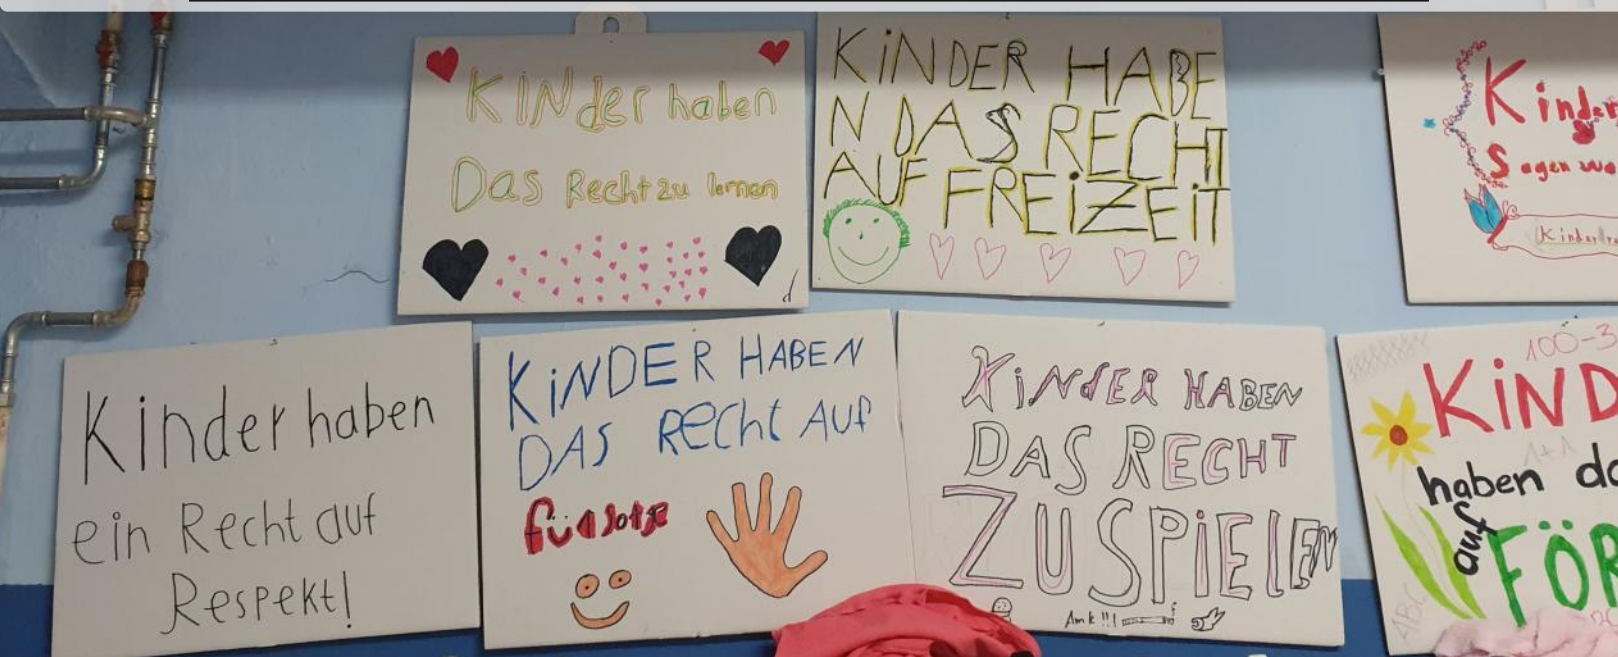 KINder haben
Das Recht zu lernen
KiNDER HABE
N DAS RECHT
AUF FREiZEiT
Kinder
Sagen
Kinder haben
ein Recht auf
Respekt!
KiNDER HABEN
DAS RECht AUf
fürsorge
KiNdER HABEN
DAS RECHT
ZU SPiElEN
Amk !!!
100-3
KiND
1+1
haben da
auf
FÖR
ABC